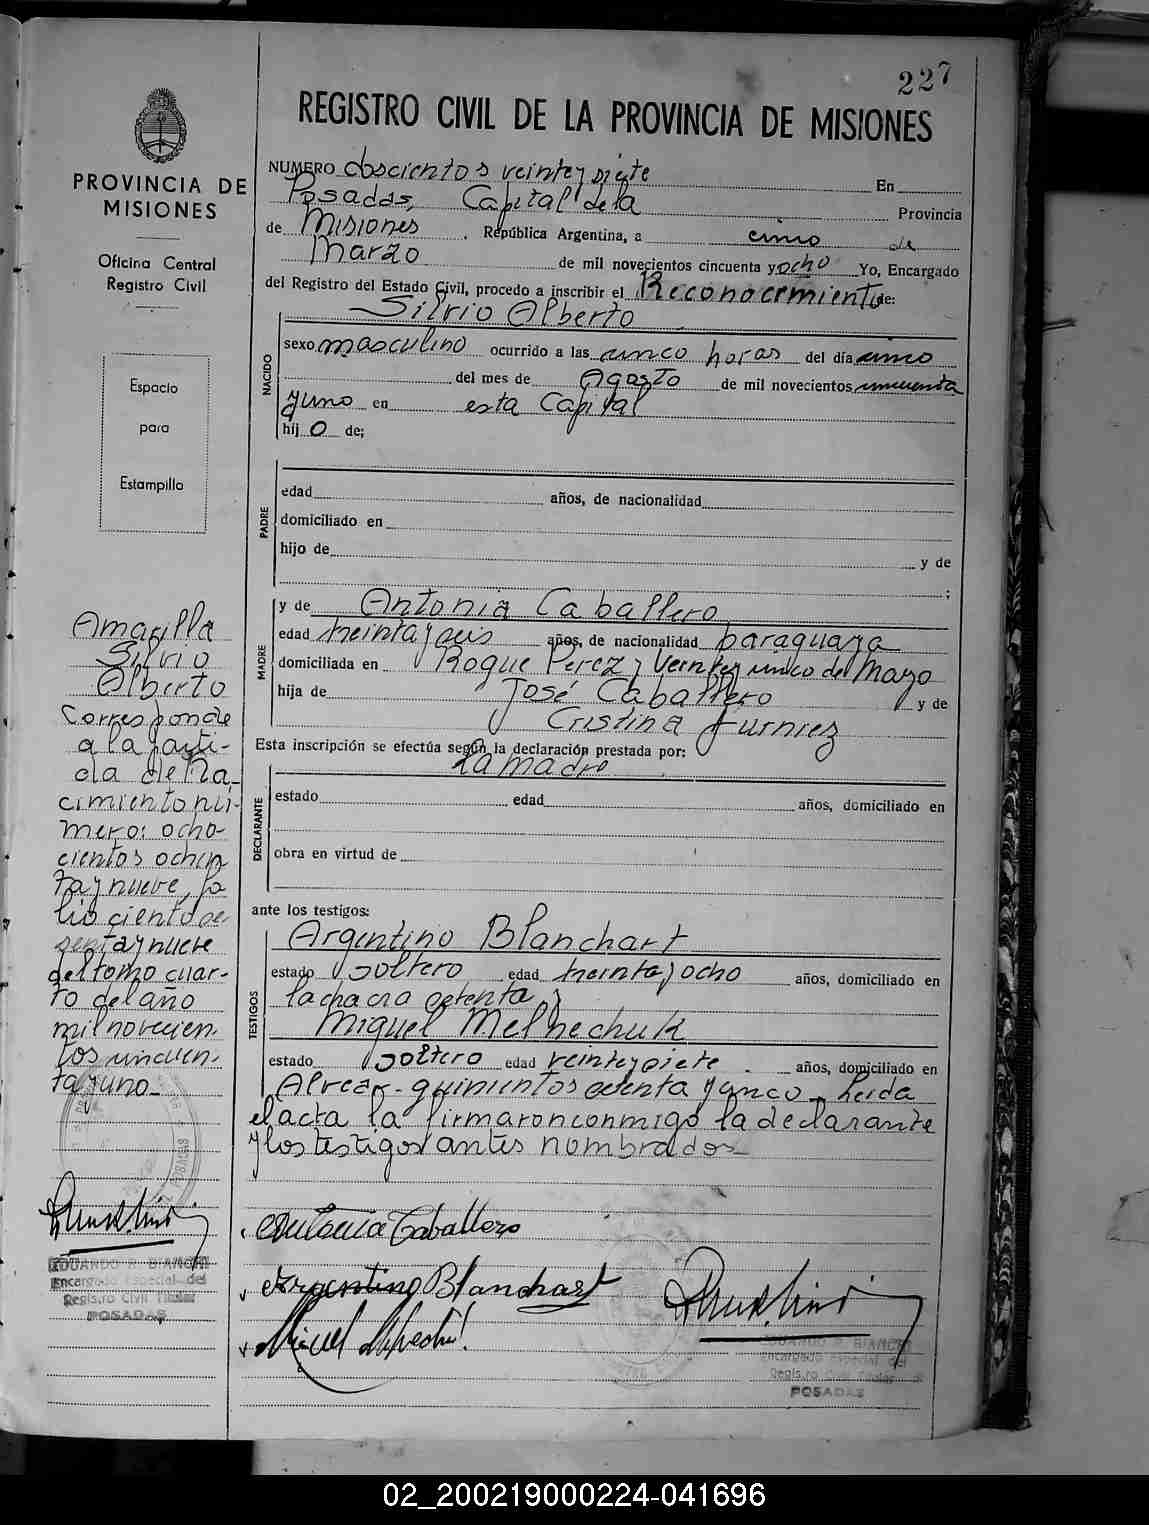 227
REGISTRO CIVIL DE LA PROVINCIA DE MISIONES
PROVINCIA DE
MISIONES
Oficina Central
Registro Civil
Espacio
para
Estampilla
NUMERO doscientos veinte y siete En
Posadas, Capital de la Provincia
de Misiones. República Argentina, a cinco de
Marzo de mil novecientos cincuenta y ocho Yo, Encargado
del Registro del Estado Civil, procedo a inscribir el Reconocimiento de:
Silvio Alberto
NACIDO
sexo masculino ocurrido a las cinco horas del día cinco
del mes de Agosto de mil novecientos cincuenta
y uno en esta Capital
hij o de;
PADRE
edad años, de nacionalidad
domiciliado en
hijo de y de
;
MADRE
y de Antonia Caballero
edad treinta y seis años, de nacionalidad paraguaya
domiciliada en Roque Perez y Veinte y cinco de Mayo
hija de José Caballero y de
Cristina
Esta inscripción se efectúa según la declaración prestada por:
La madre
DECLARANTE
estado edad años, domiciliado en
obra en virtud de
ante los testigos:
TESTIGOS
Argentino Blanchart
estado soltero edad treinta y ocho años, domiciliado en
la chacra ochenta y
Miguel Melnechuk
estado soltero edad veinte y siete años, domiciliado en
Alvear quinientos ochenta y cinco. Leida
el acta la firmaron conmigo la declarante
y los testigos antes nombrados
Amarilla
Silvio
Alberto
Corresponde
a la parti-
da de Na-
cimiento nú-
mero: ocho-
cientos ochen
ta y nueve, fo
lio ciento se
senta y nueve
del tomo cuar-
to del año
mil novecien-
tos cincuen-
ta y uno.
Antonia Caballero
Argentino Blanchart
Miguel
EDUARDO R. BIANCHI
Encargado Especial del
Registro Civil Titular
POSADAS
EDUARDO R. BIANCHI
Encargado Especial del
Registro Civil Titular
POSADAS
02_200219000224-041696